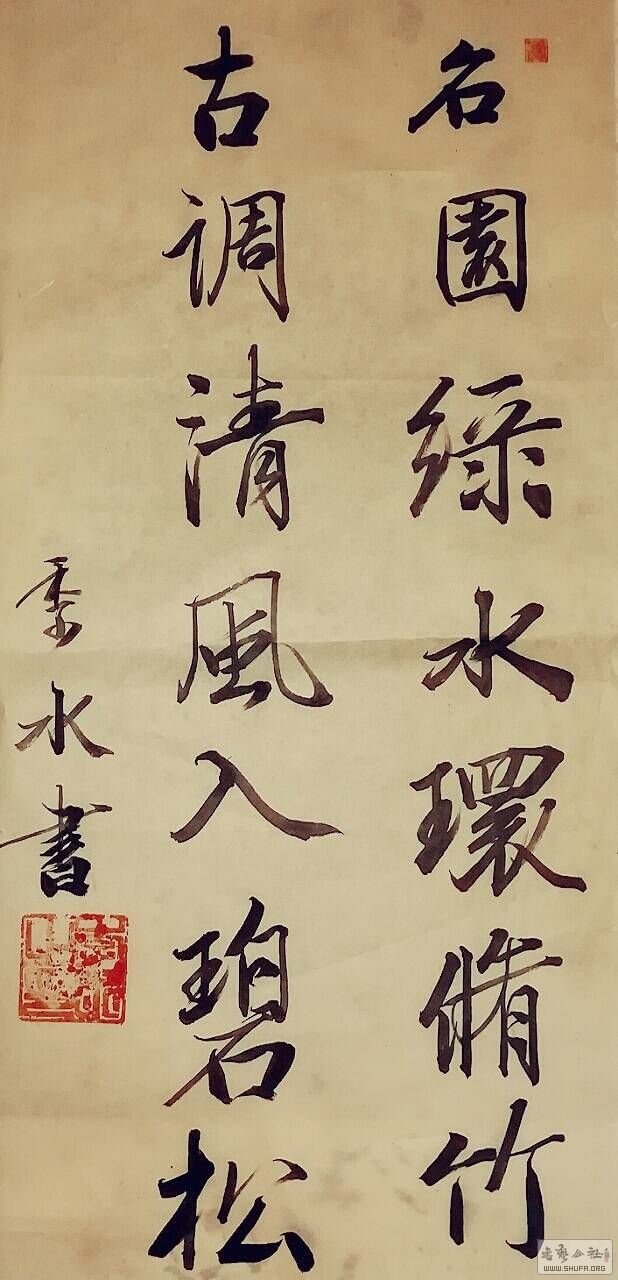 名園綠水環脩竹
古调清風入碧松
季水書
書藝公社
WWW.SHUFA.ORG